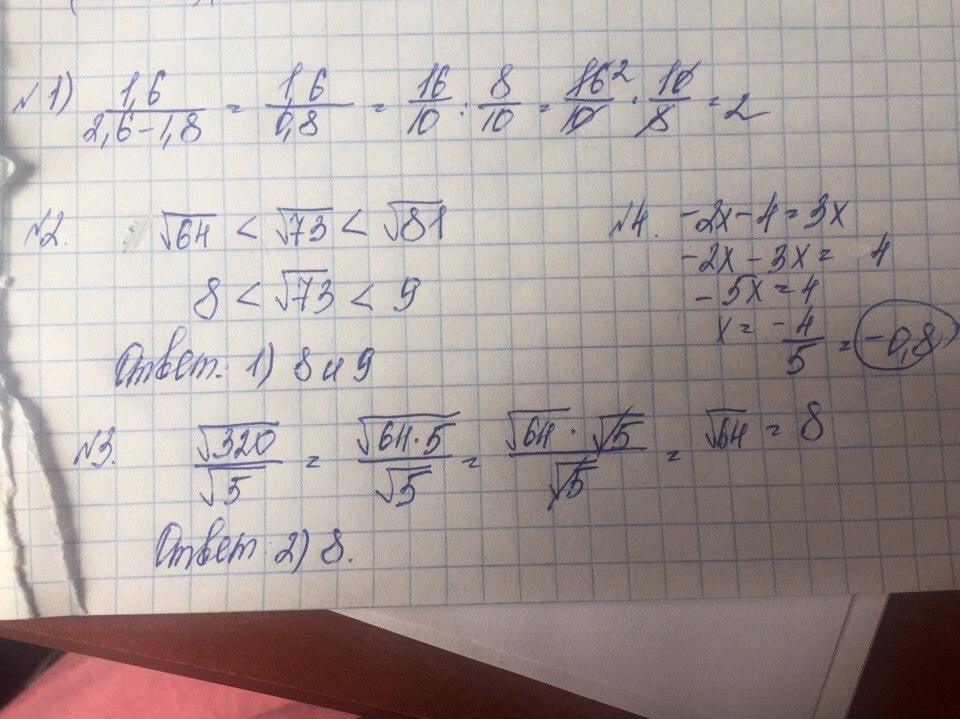 №1) 1,6/(2,6-1,8) = 1,6/0,8 = 16/10 : 8/10 = 16²/10 · 10/8 = 2
№2. √64 < √73 < √81
8 < √73 < 9
Ответ: 1) 8 и 9
№4. -2x-4=3x
-2x-3x= 4
-5x=4
x= -4/5 = -0,8
№3. √320/√5 = √(64·5)/√5 = (√64·√5)/√5 = √64 = 8
Ответ: 2) 8.